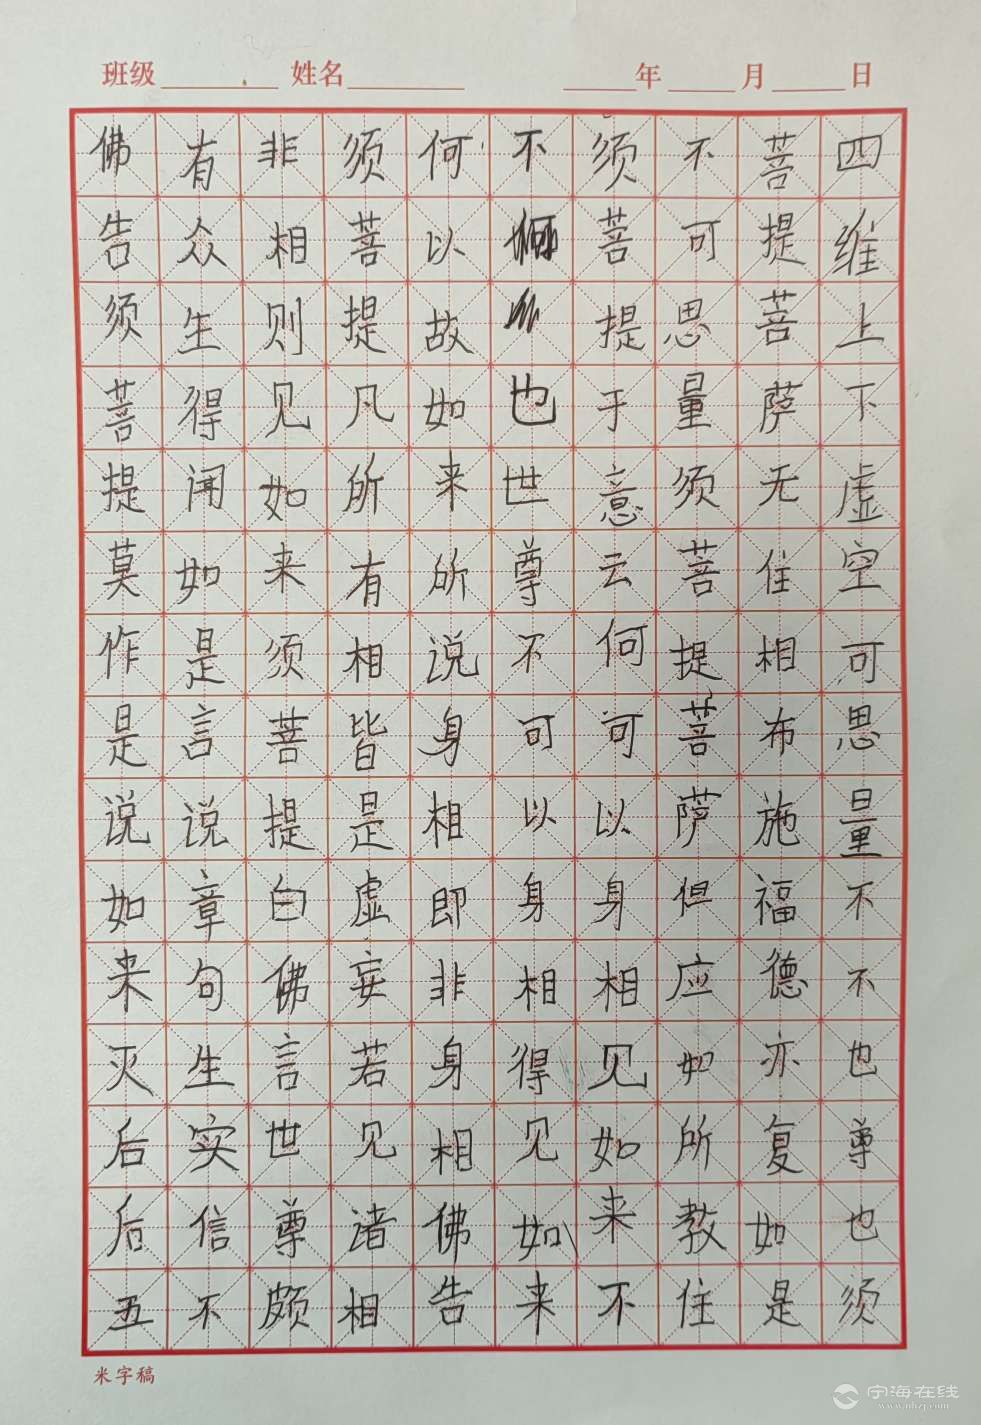 班级 姓名 年 月 日
四维上下虚空可思量不不也尊也须
菩提菩萨无住相布施福德亦复如是
不可思量须菩提菩萨但应如所教住
须菩提于意云何可以身相见如来不
不也世尊不可以身相得见如来
何以故如来所说身相即非身相佛告
须菩提凡所有相皆是虚妄若见诸相
非相则见如来须菩提白佛言世尊颇
有众生得闻如是言说章句生实信不
佛告须菩提莫作是说如来灭后后五
米字稿
宁海在线
www.nhzj.com